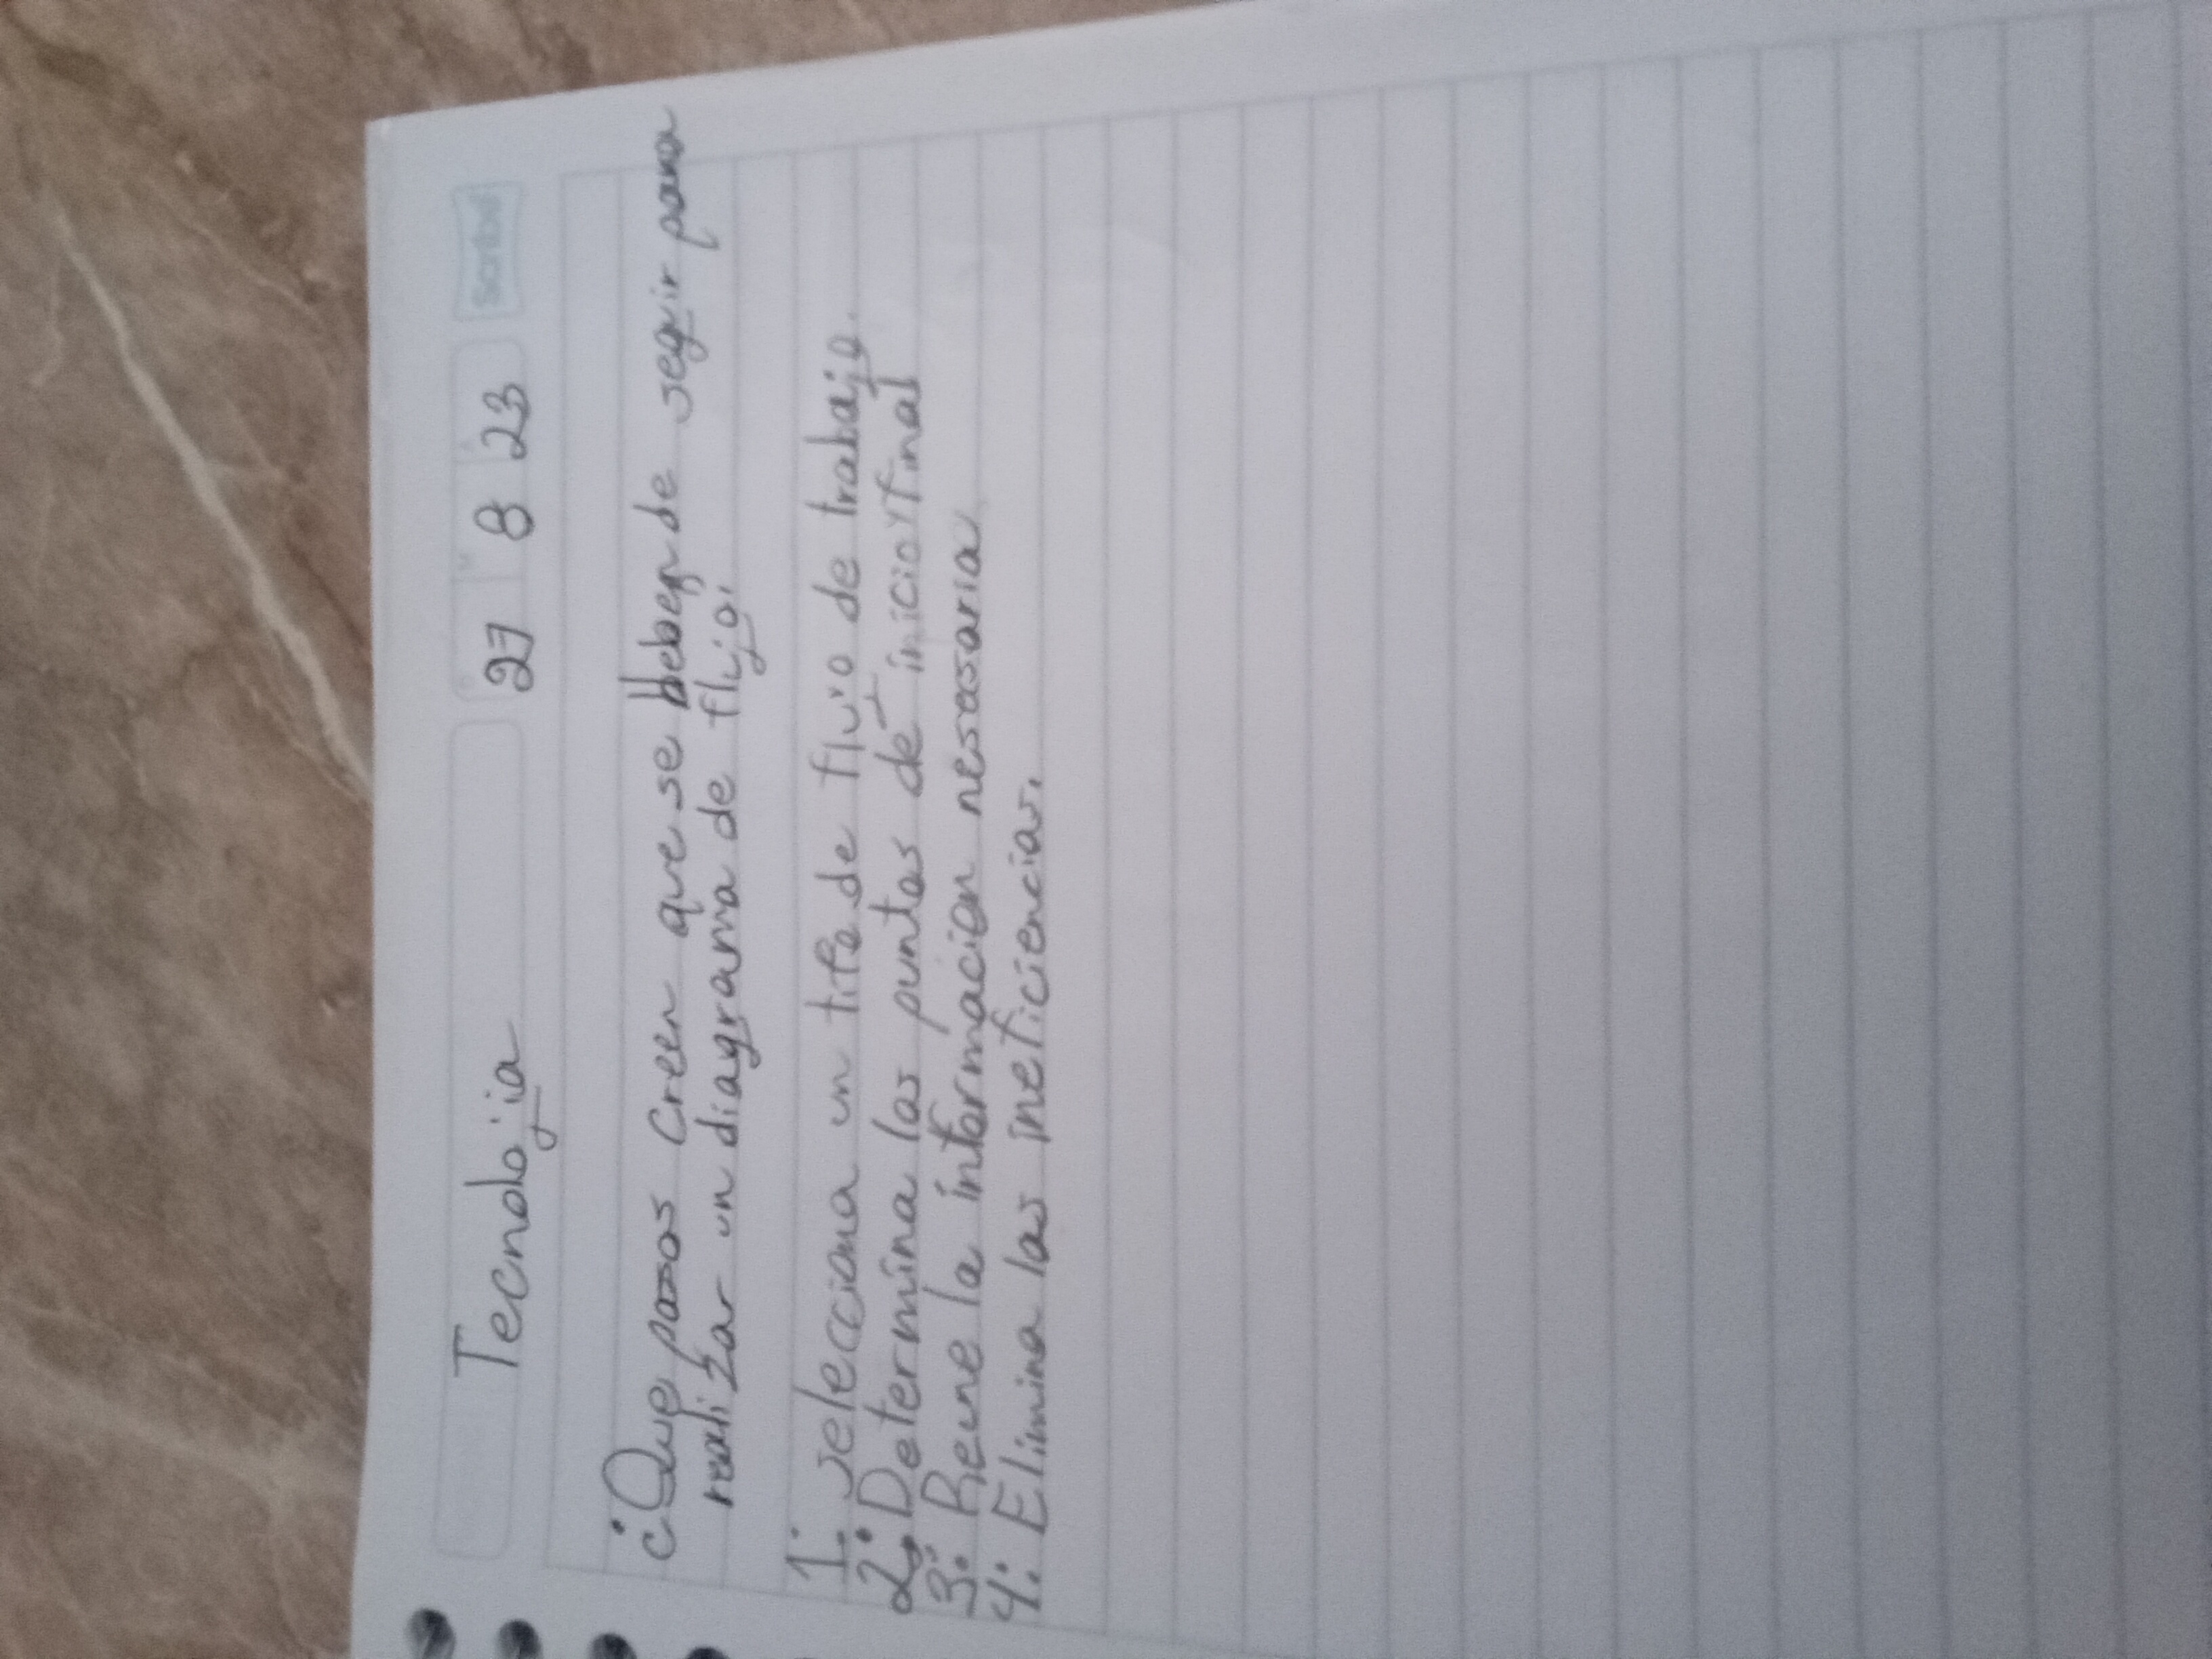 Tecnolojia 27 8 23 Scribe
¿Que pasos Creen que se deben de seguir para
realizar un diagrama de flujo.
1: selecciona un tipo de flujo de trabajo.
2: Determina los puntos de inicio y final
3: Reune la informacion nesesaria
4: Elimina las ineficiencias.